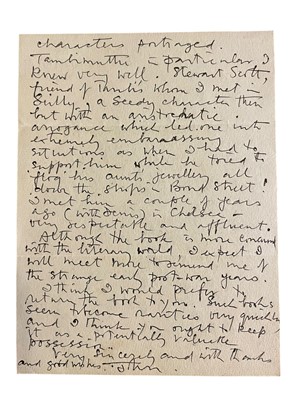 characters portrayed.
Tambimuttu in particular I
knew very well. Stewart Scott,
friend of Tambi's whom I met in
, a seedy character then
but with an aristocratic
arrogance which led one into
extremely embarrassing
situations as when I had to
support him while he tried to
flog his aunt's jewellery all
down the shops in Bond Street!
I met him a couple of years
ago (with Denis) in Chelsea –
very respectable and affluent.
Although the book is more concerned
with the literary world, I expect I
will meet more to remind me of
the strange early post-war years.
I think I would prefer to
return the book to you. Such books
seem to become rarities very quickly
and I think you ought to keep
it as a potentially valuable
possession.
Very sincerely and with thanks
and good wishes.